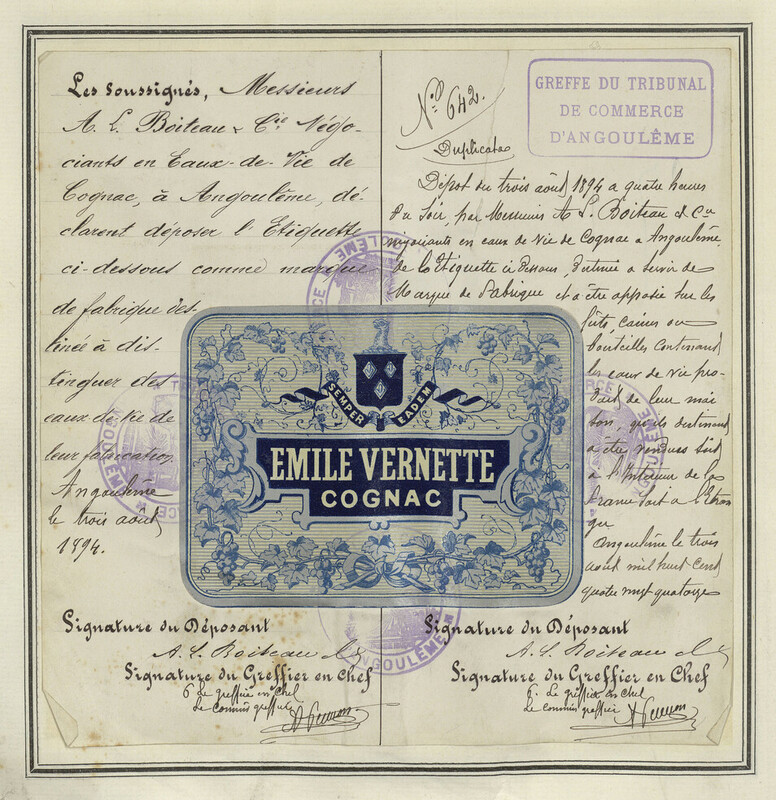 Les Soussignés, Messieurs
A. L. Boiteau & Cie Négo-
ciants en Eaux-de-Vie de
Cognac, à Angoulême, dé-
clarent déposer l'Etiquette
ci-dessous comme marque
de fabrique des-
tinée à dis-
tinguer des
eaux-de-vie de
leur fabrication
Angoulême
le trois août
1894.
Signature du Déposant
A. L. Boiteau &
Signature du Greffier en Chef
P. Le greffier en chef
Le commis greffier
No 642.
Duplicata
GREFFE DU TRIBUNAL
DE COMMERCE
D'ANGOULÊME
Dépot du trois août 1894 a quatre heures
du soir, par Messieurs A. L. Boiteau & Cie
négociants en eaux de vie de Cognac a Angoulême,
de l'Etiquette ci dessous, destinée a servir de
Marque de Fabrique et a être apposée sur les
fûts, caisses ou
bouteilles contenant
les eaux de vie pro-
duit de leur mai
son, qu'ils destinent
a être vendues soit
a l'Interieur de la
France soit a l'Etran
ger
Angoulême le trois
août mil huit cent
quatre vingt quatorze
Signature du Déposant
A. L. Boiteau &
Signature du Greffier en Chef
P. Le greffier en chef
Le commis greffier
SEMPER EADEM
EMILE VERNETTE
COGNAC